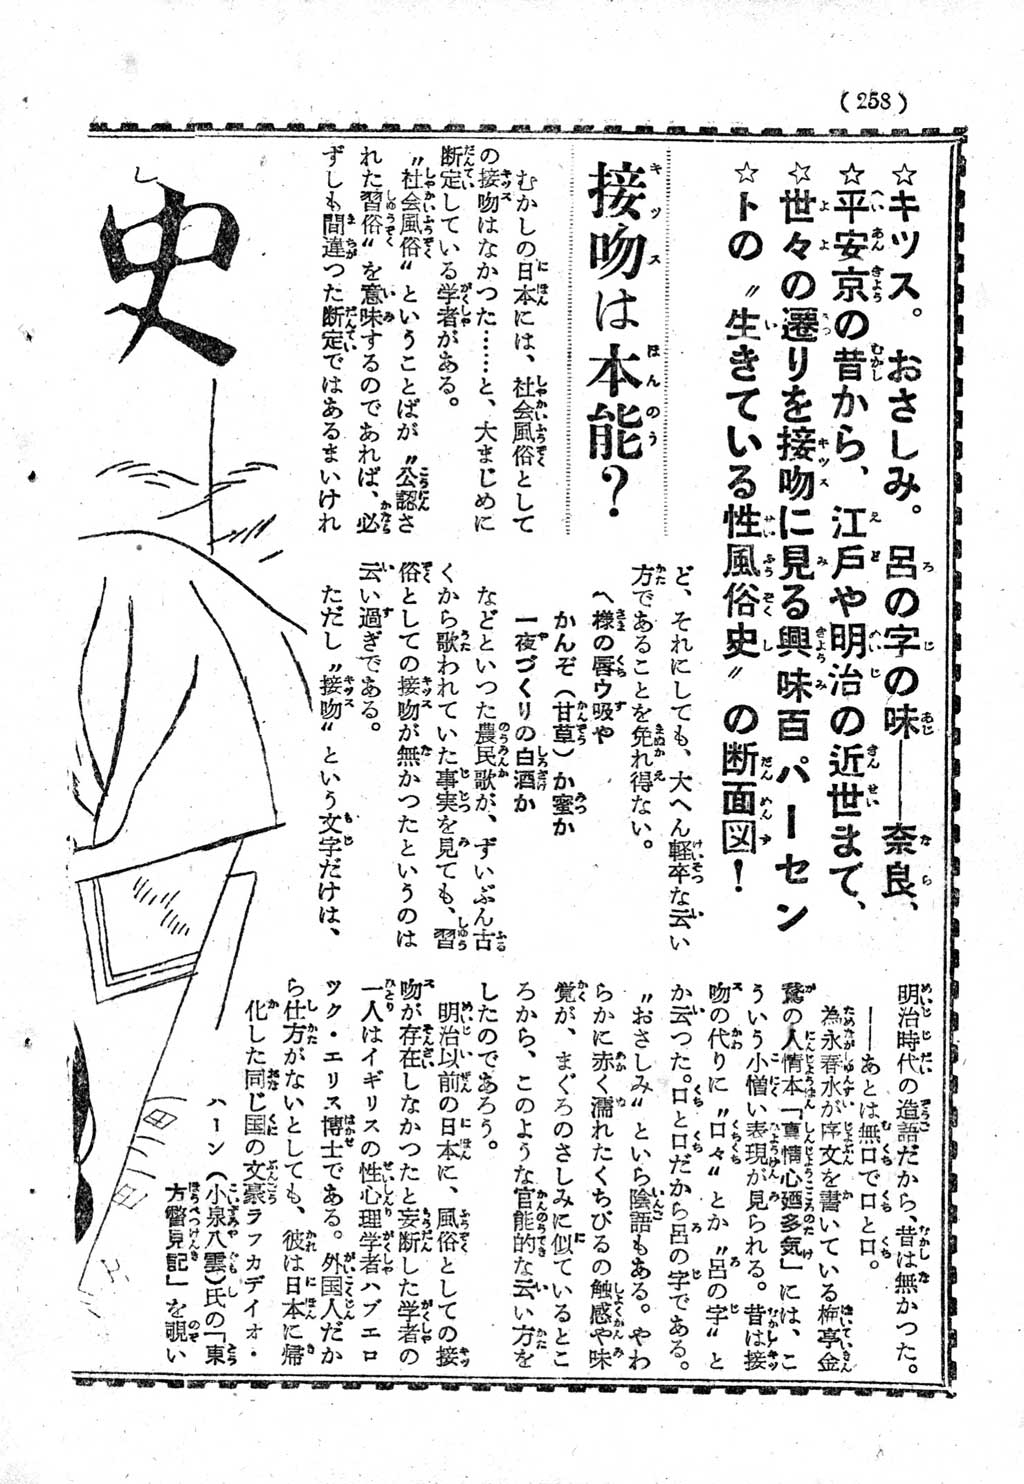 (258)
☆キツス。おさしみ。呂の字の味――奈良、
☆平安京の昔から、江戸や明治の近世まで、
☆世々の遷りを接吻に見る興味百パーセン
☆トの〝生きている性風俗史〟の断面図!
接吻は本能?
むかしの日本には、社会風俗として
の接吻はなかつた……と、大まじめに
断定している学者がある。
〝社会風俗〟ということばが〝公認さ
れた習俗〟を意味するのであれば、必
ずしも間違つた断定ではあるまいけれ
史
し
ど、それにしても、大へん軽卒な云い
方であることを免れ得ない。
へ様の唇ウ吸や
かんぞ(甘草)か蜜か
一夜づくりの白酒か
などといつた農民歌が、ずいぶん古
くから歌われていた事実を見ても、習
俗としての接吻が無かつたというのは
云い過ぎである。
ただし〝接吻〟という文字だけは、
明治時代の造語だから、昔は無かつた。
――あとは無口で口と口。
為永春水が序文を書いている梅亭金
鵞の人情本「真情心廼多気」には、こ
ういう小憎い表現が見られる。昔は接
吻の代りに〝口々〟とか〝呂の字〟と
か云つた。口と口だから呂の字である。
〝おさしみ〟といら陰語もある。やわ
らかに赤く濡れたくちびるの触感や味
覚が、まぐろのさしみに似ているとこ
ろから、このような官能的な云い方を
したのであろう。
明治以前の日本に、風俗としての接
吻が存在しなかつたと妄断した学者の
一人はイギリスの性心理学者ハブエロ
ツク・エリス博士である。外国人だか
ら仕方がないとしても、彼は日本に帰
化した同じ国の文豪ラフカデイオ・
ハーン(小泉八雲)氏の「東
方瞥見記」を覗い